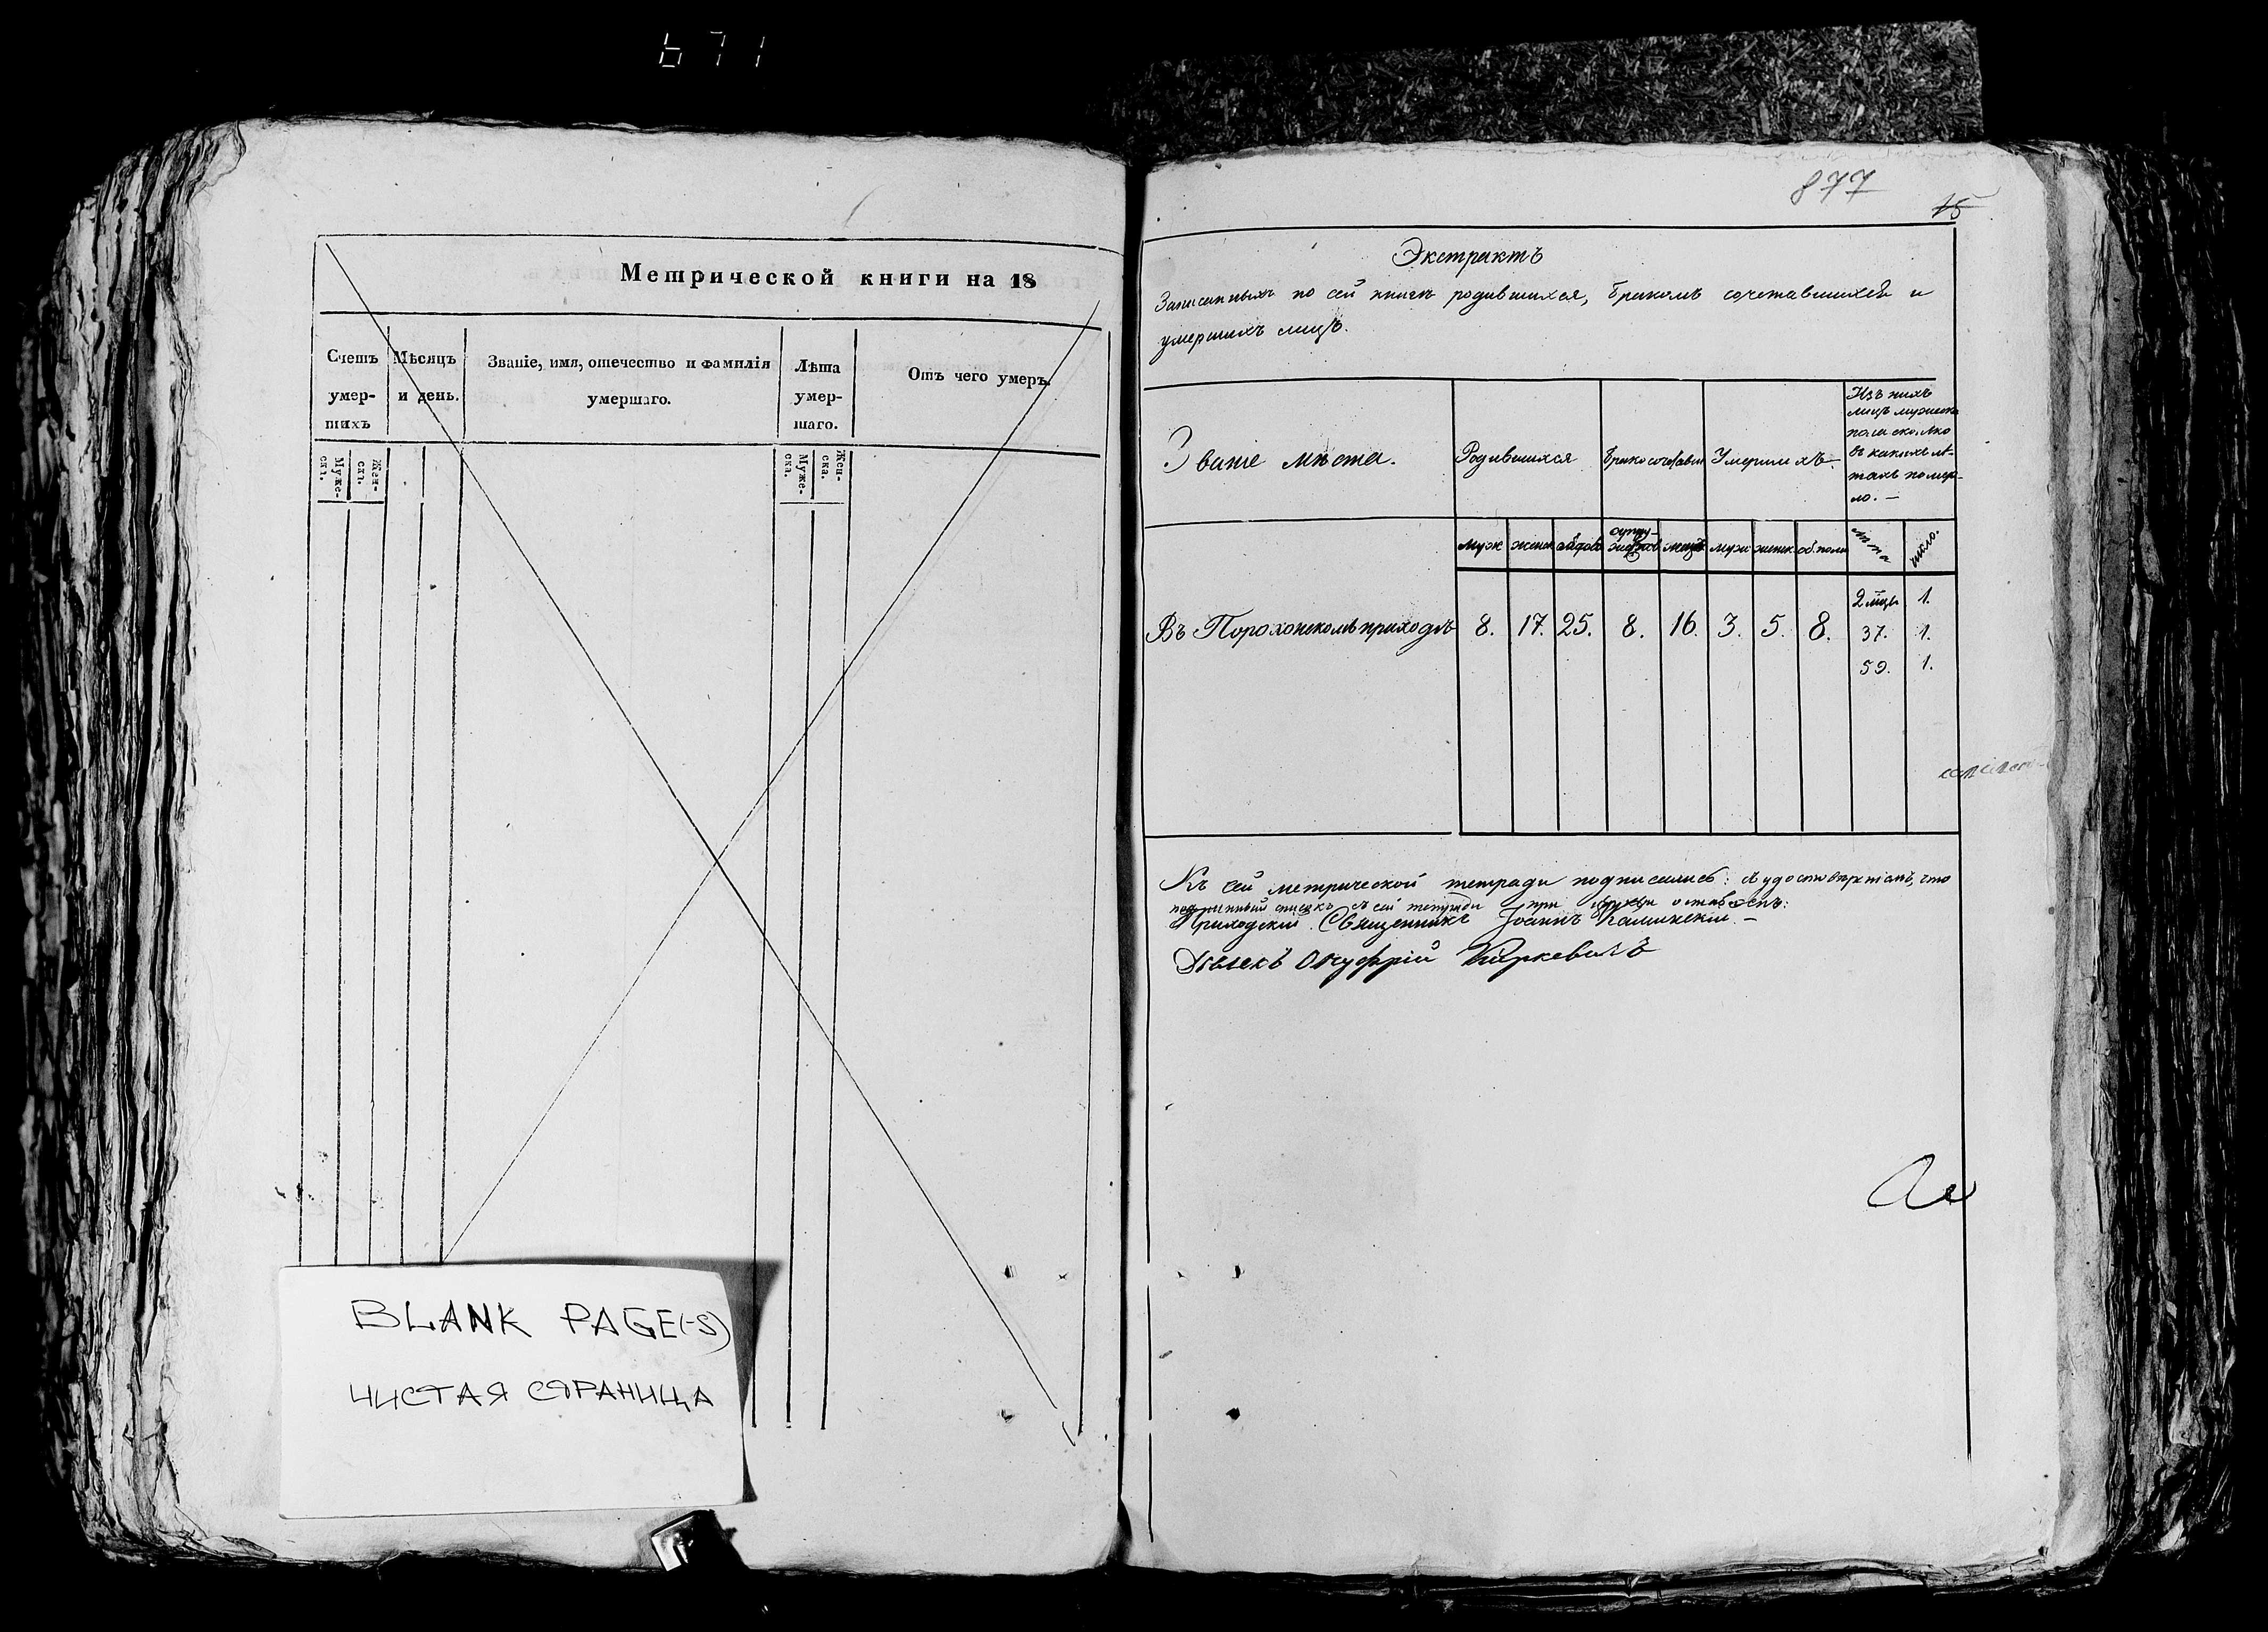 671
Метрической книги на 18
Счетъ умер- шихъ
Мѣсяцъ и день.
Званіе, имя, отечество и фамилія умершаго.
Лѣта умер- шаго.
Отъ чего умеръ.
Муже- ска.
Жен- ска.
Муже- ска.
Жен- ска.
BLANK PAGE(-S)
ЧИСТАЯ СТРАНИЦА
877
15
Экстрактъ
Записанныхъ по сей книгѣ родившихся, бракомъ сочетавшихся и
умершихъ лицъ.
Званіе мѣста.
Родившихся
Умершихъ
Изъ нихъ
лицъ мужеска
пола сколько
въ какихъ лѣ-
тахъ помер-
ло. —
муж женск
супру- жествъ лицъ
муж женск об. пола
лѣта число.
Въ Порохонскомъ приходѣ 8. 17. 25. 8. 16. 3. 5. 8.
2 мцы 1.
37. 1.
59. 1.
Къ сей метрической тетради подписались: съ удостовѣреніемъ, что
подлинный списокъ съ сей тетради при церкви оставленъ:
Приходскій Священникъ Іоаннъ Калинскій. —
Дьячекъ Онуфрій